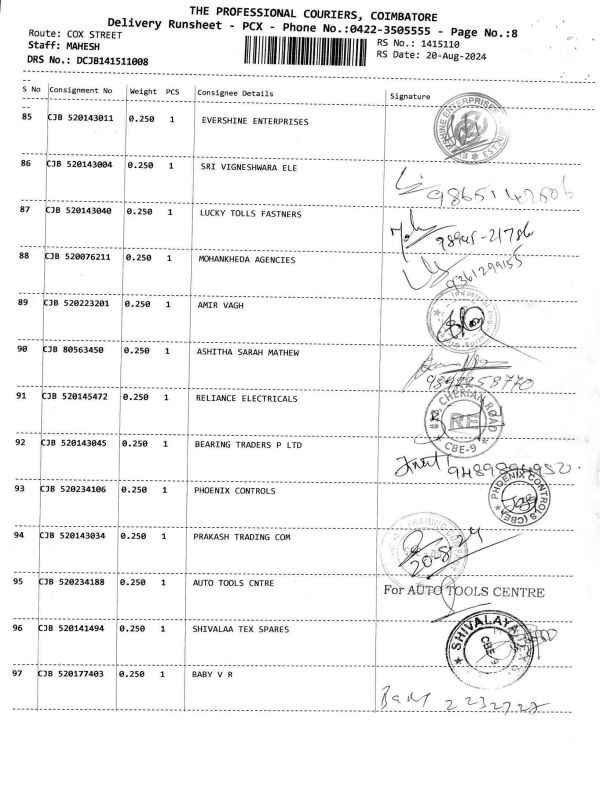 THE PROFESSIONAL COURIERS, COIMBATORE
Delivery Runsheet - PCX - Phone No.:0422-3505555 - Page No.:8
Route: COX STREET
RS No.: 1415110
Staff: MAHESH
RS Date: 20-Aug-2024
DRS No.: DCJB141511008
S No Consignment No Weight PCS Consignee Details Signature
85 CJB 520143011 0.250 1 EVERSHINE ENTERPRISES
86 CJB 520143004 0.250 1 SRI VIGNESHWARA ELE
87 CJB 520143040 0.250 1 LUCKY TOLLS FASTNERS 98945-21786
88 CJB 520076211 0.250 1 MOHANKHEDA AGENCIES 9361299155
89 CJB 520223201 0.250 1 AMIR VAGH
90 CJB 80563450 0.250 1 ASHITHA SARAH MATHEW 9892258770
91 CJB 520145472 0.250 1 RELIANCE ELECTRICALS CHERIAN ROAD RE CBE-9
92 CJB 520143045 0.250 1 BEARING TRADERS P LTD
93 CJB 520234106 0.250 1 PHOENIX CONTROLS PHOENIX CONTROLS (CBE)
94 CJB 520143034 0.250 1 PRAKASH TRADING COM 20-8-24
95 CJB 520234188 0.250 1 AUTO TOOLS CNTRE For AUTO TOOLS CENTRE
96 CJB 520141494 0.250 1 SHIVALAA TEX SPARES SHIVALAYA CBE-9
97 CJB 520177403 0.250 1 BABY V R